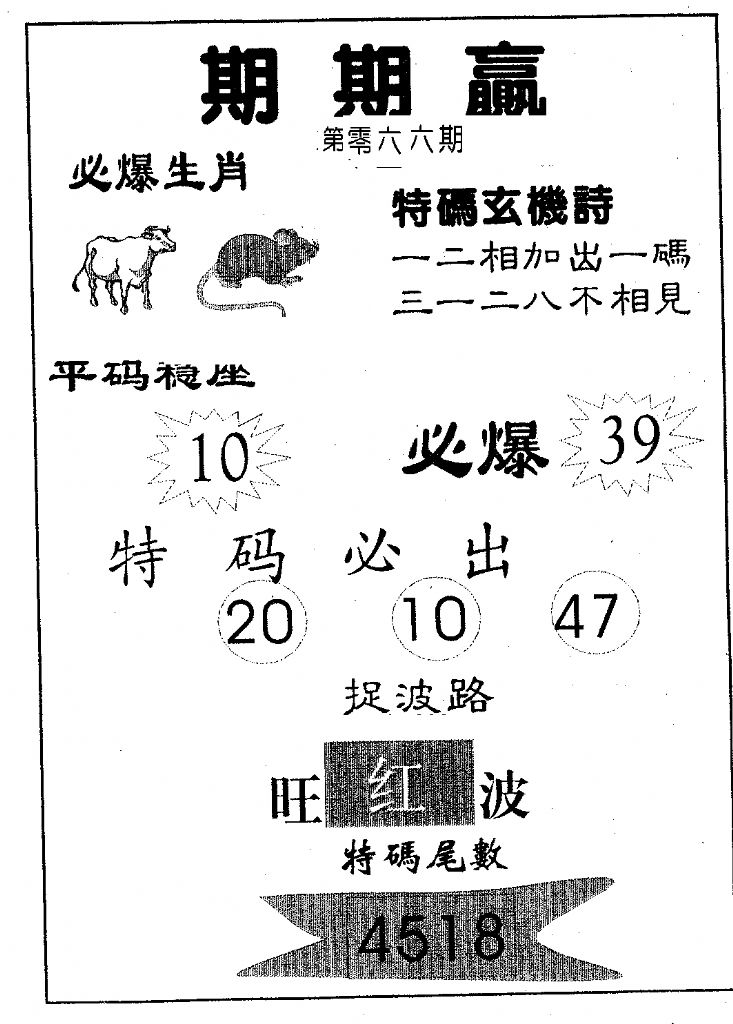 期期贏
第零六六期
必爆生肖
特碼玄機詩
一二相加出一碼
三一二八不相見
平码稳座
10
必爆 39
特码必出
20 10 47
捉波路
旺红波
特碼尾數
4518